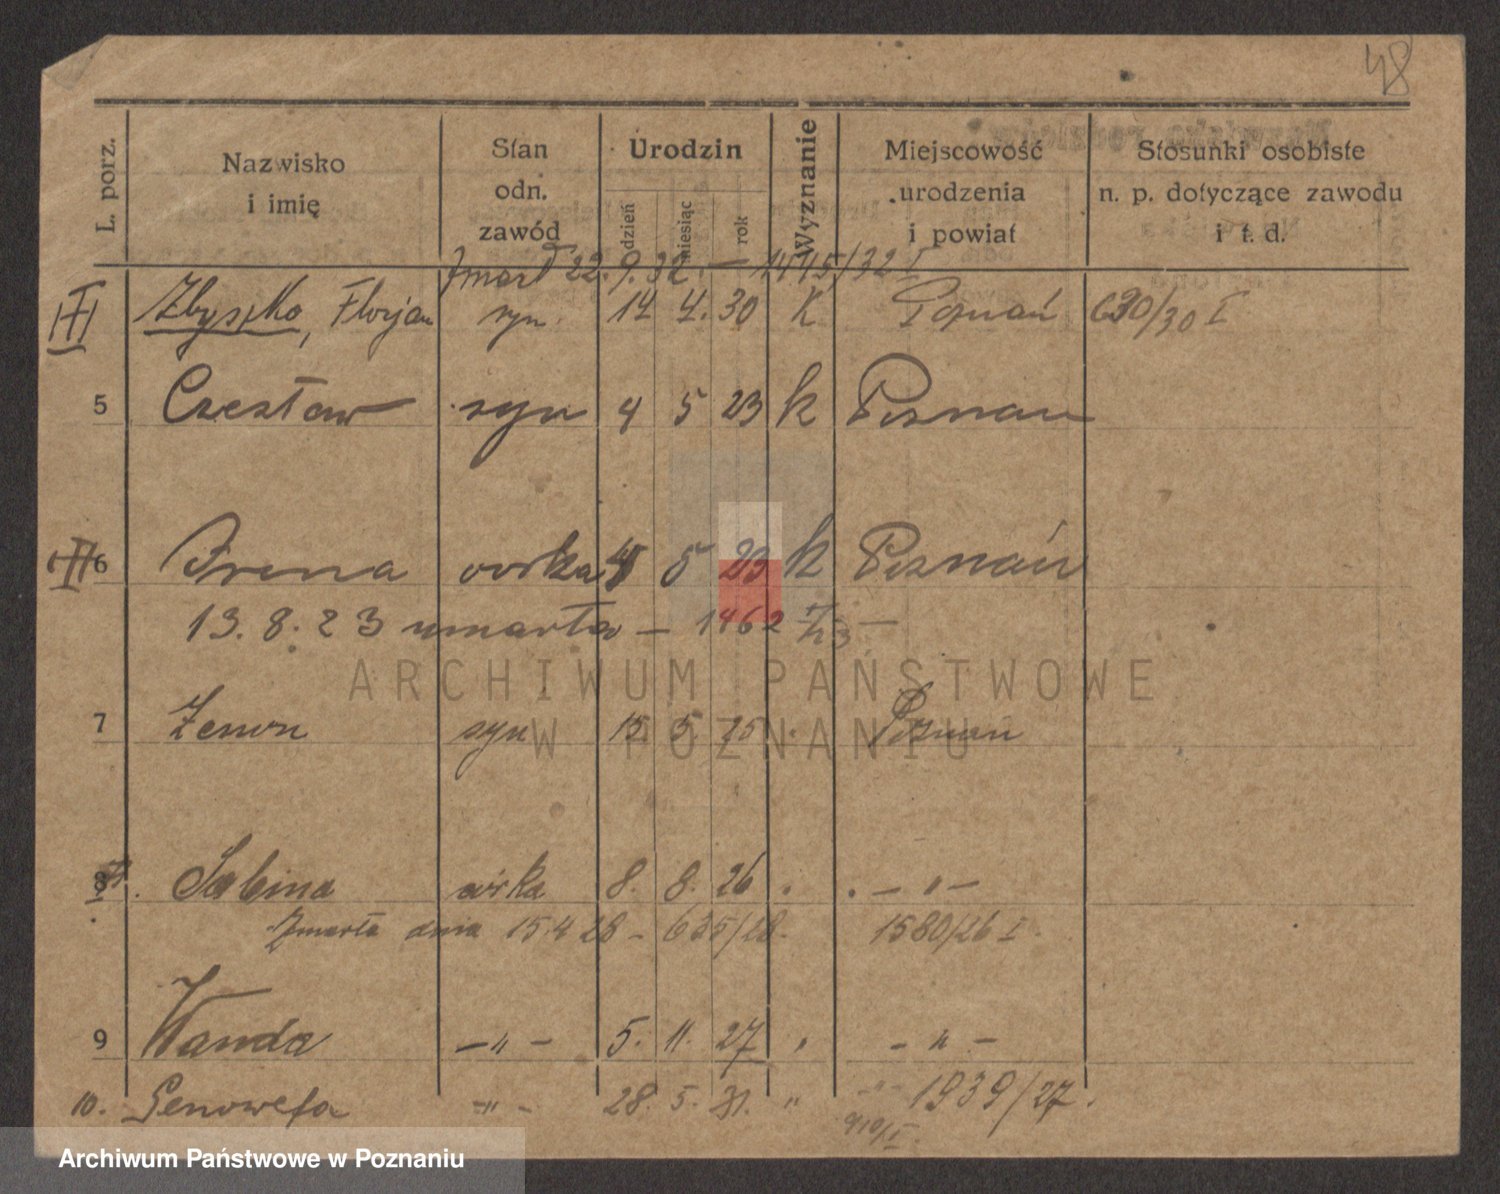 48
L. porz.
Nazwisko i imię
Stan odn. zawód
Urodzin
dzień
miesiąc
rok
Wyznanie
Miejscowość urodzenia i powiat
Stosunki osobiste n. p. dotyczące zawodu i t. d.
Zmarł 22. 9. 32. — 1475/32 I
Zbyszko, Florjan syn 14 4. 30 K Poznań 690/30 I
5 Czesław syn 4 5 23 k Poznan
6 Irena córka 5 23 k Poznań
13. 8. 23 umarła — 1462
7 Zenon syn 15 5 25 Poznan
8 Sabina córka 8. 8. 26 - " -
Zmarła dnia 15.4 28 - 635/28. 1580/26 I.
9 Wanda - " - 5. 11. 27 - " -
1939/27.
10. Genowefa - " - 28. 5. 31. "
910/I.
ARCHIWUM PAŃSTWOWE
W POZNANIU
Archiwum Państwowe w Poznaniu